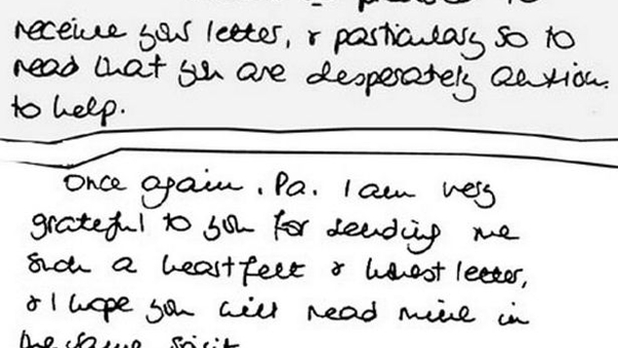 to
receive your letter, & particularly so to
read that you are desperately anxious
to help.
Once again, Pa, I am very
grateful to you for sending me
such a heartfelt & honest letter,
& I hope you will read mine in
the same spirit